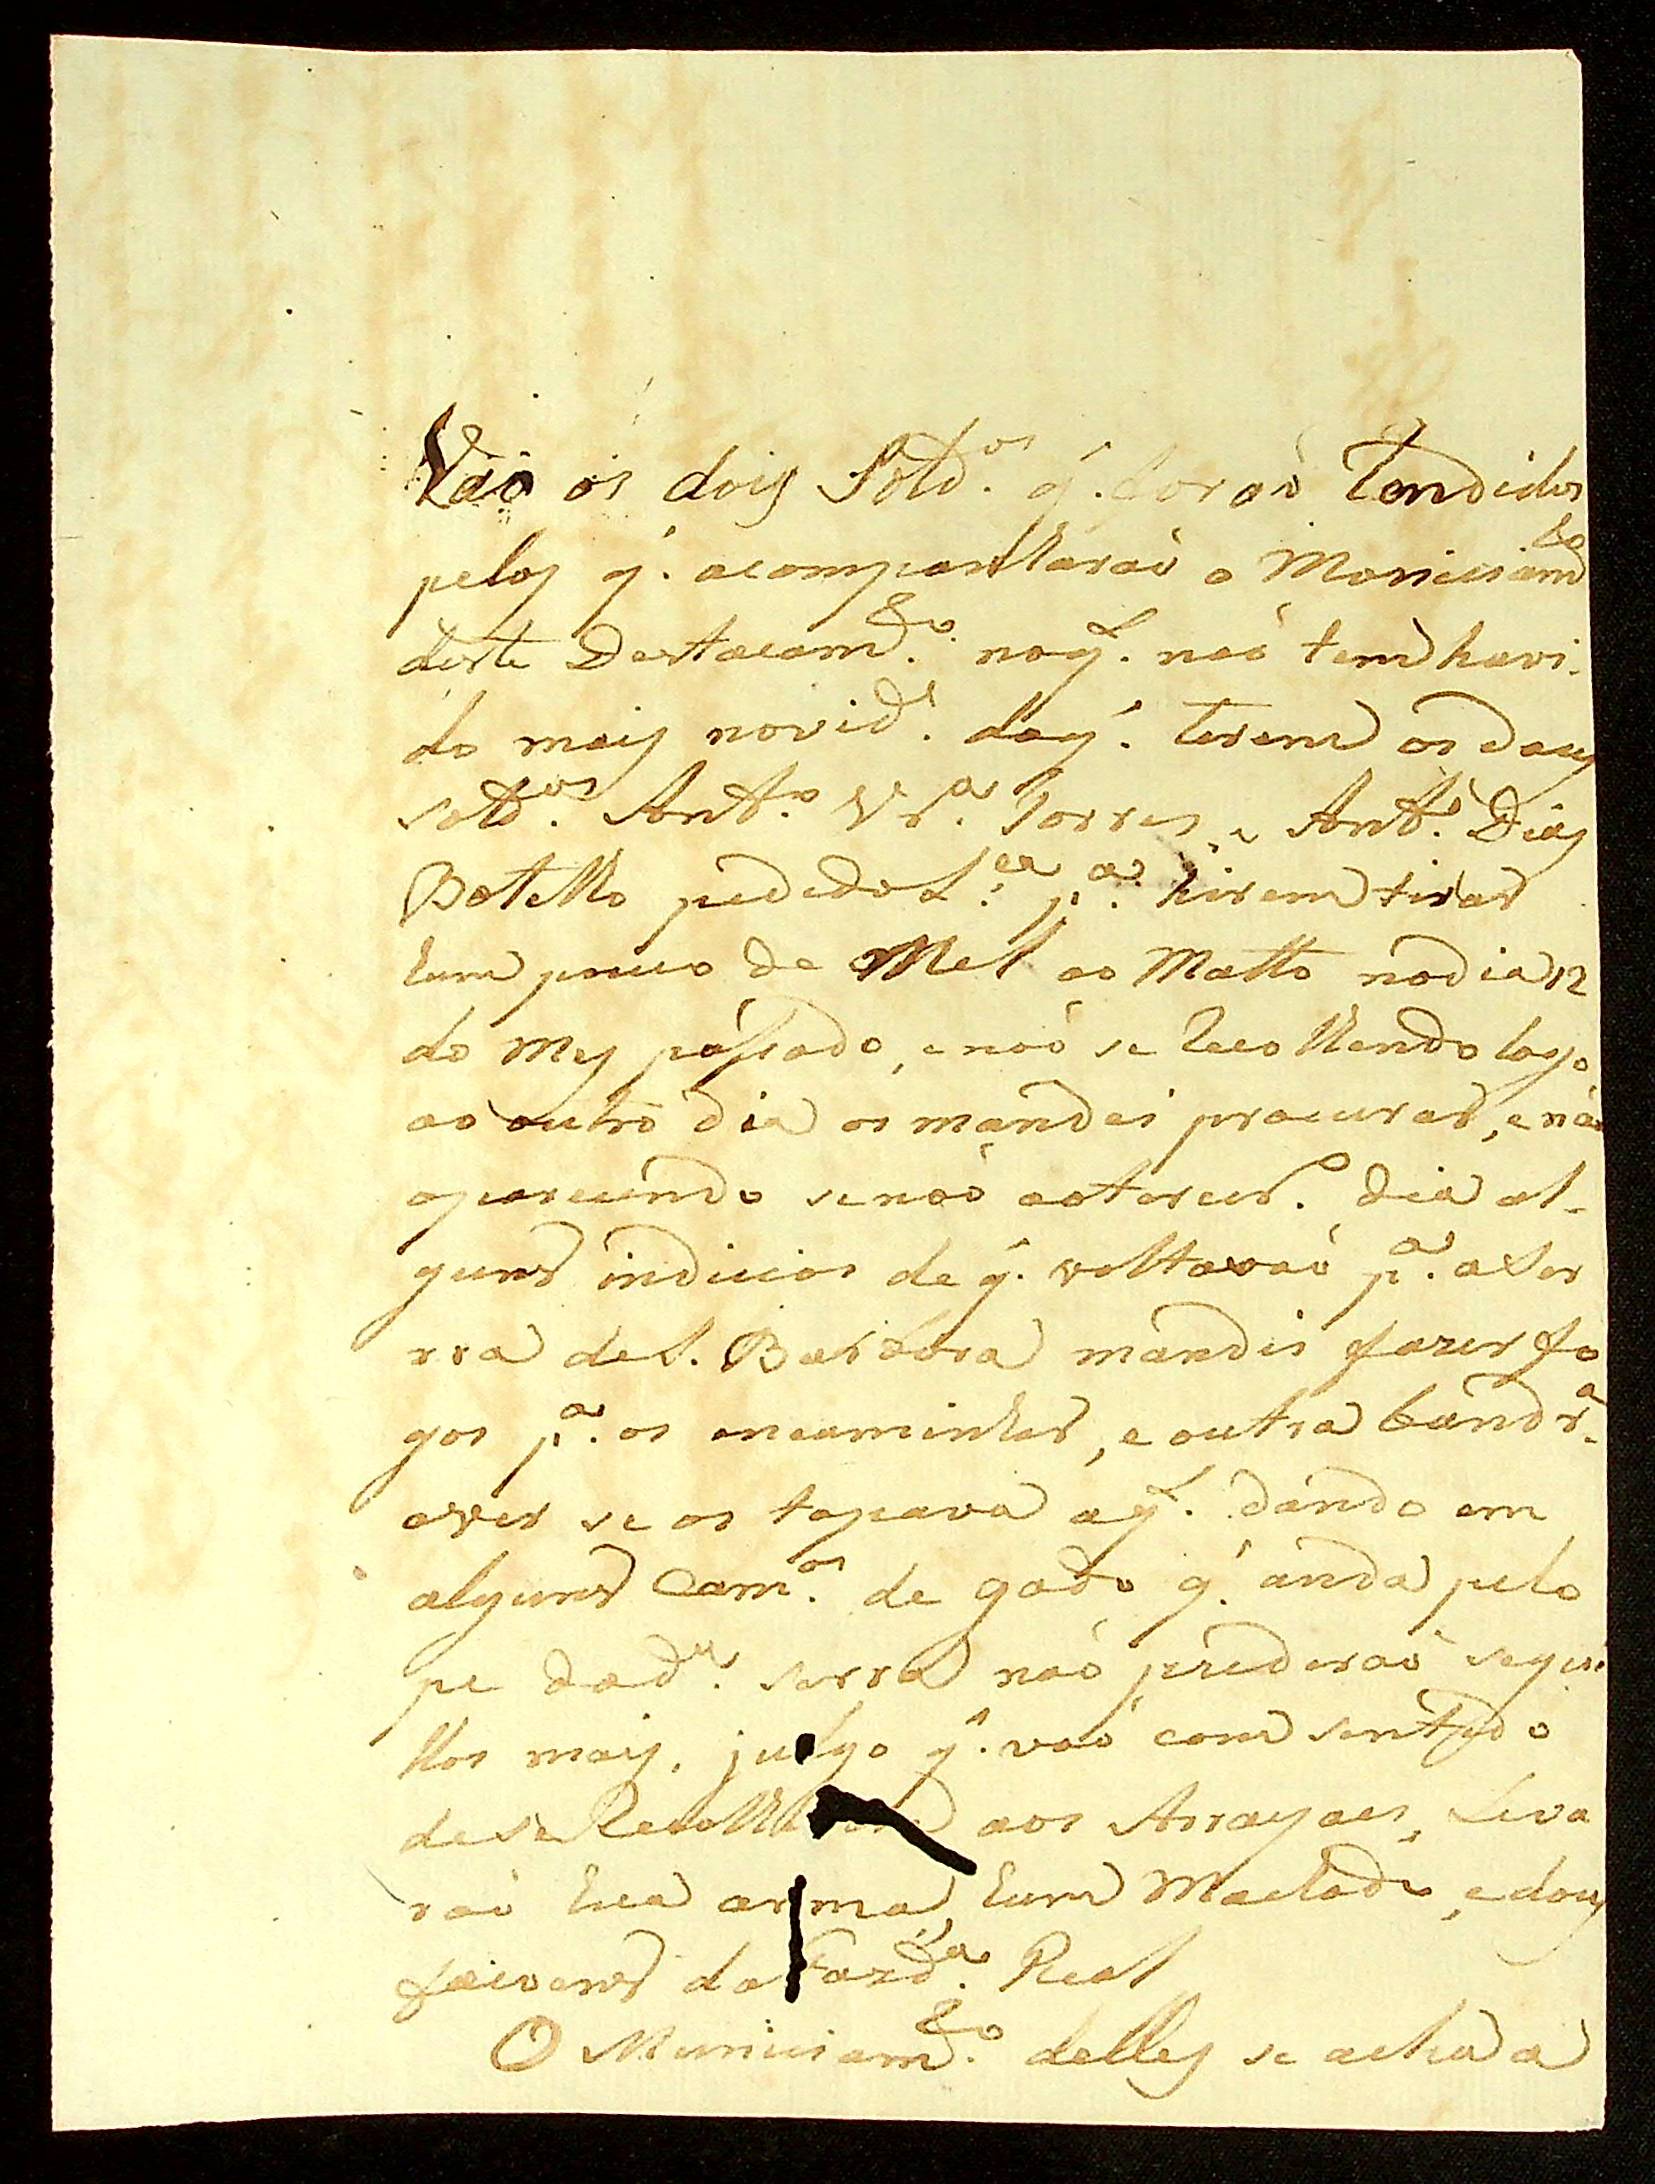 Vão os dois Sold.os q́. foraõ Rendidos
pelos q́. acompanharaõ o Moniciam.to
deste Destacam.to noq.l naõ tem havi-
do mais novid.e doq́. terem os dous
sold.os Ant.o Vr.a Torres, e Ant.o Dias
Botelho pedido L.ca p.a hirem tirar
hum pouco de Mel ao Matto nodia 12
do Mes pássado, enaõ se Recolhendo logo
ao outro dia os mandei procurar, enaõ
aparecendo senaõ aoterceir.o dia al-
guns indicios de q́. voltavaõ p.a aSer
rra deS. Barbora mandei fazer fo
gos p.a os encaminhar, e outra bandr.a
aver se os topava aq.l dando em
alguns Cam.os de gado q́. anda pelo
pe dad.a serra naõ poderaõ segui
llos mais, julgo q́. vaõ com sentido
dese Recolherem aos Arrayaes, Leva
raõ hua arma, hum Machado, e dous
facoens da Fazd.a Real
O Municiam.to delles se acháva